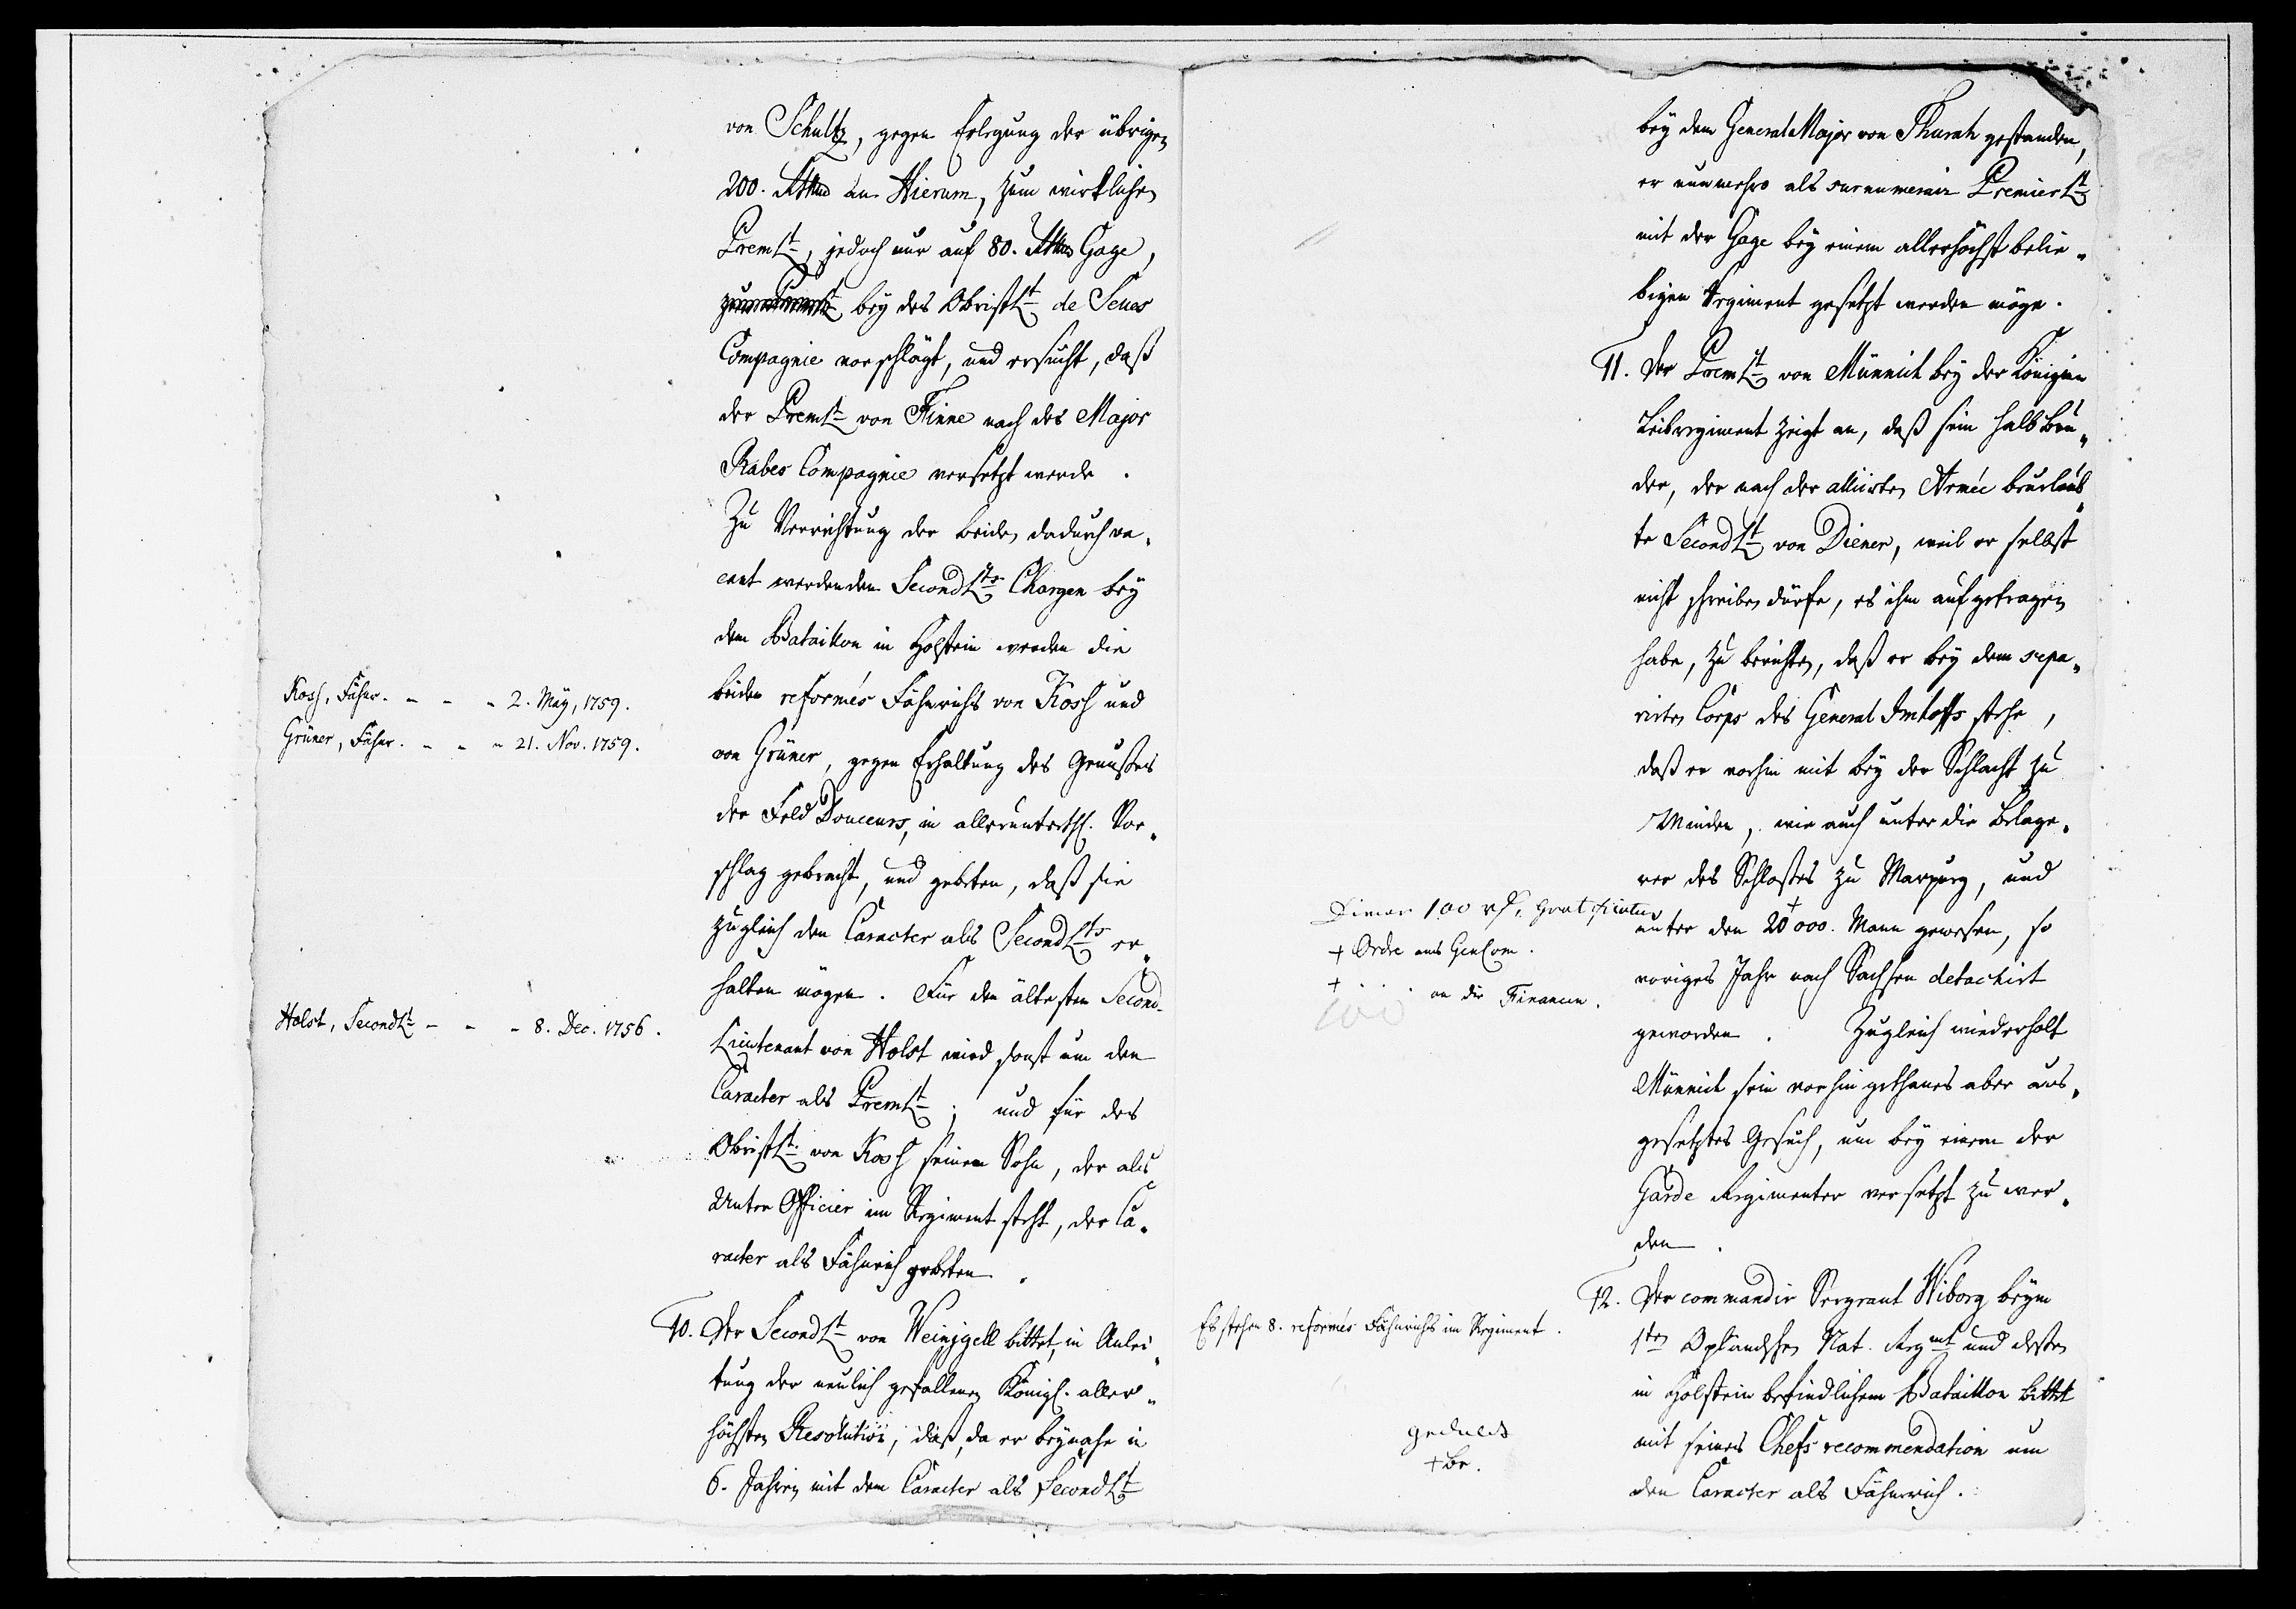 von Schultz, gegen Erlegung der übrigen
200. Rthlr an Hierum, zum wirklichen
PremLt, jedoch nur auf 80. Rthlr Gage,
bey des ObristLt de Seues
Compagnie vorschlägt, und ersucht, daß
der PremLt von Finne nach des Major
Rabes Compagnie versetzt werde.
Zu Verrichtung der beiden dadurch va„
cant werdenden SecondLts Chargen bey
dem Bataillon in Holstein werden die
Kosh, Fähnr. - - - 2. May, 1759.
beiden reformés Fähnrichs von Kosh und
Grüner, Fähnr. - - - 21. Nov. 1759.
von Grüner, gegen Erhaltung des Genußes
der Feld Douceurs, in allerunterth. Vor„
schlag gebracht, und gebeten, daß sie
zugleich den Caracter als SecondLts er„
halten mögen. Für den ältesten Second-
Holst, SecondLt - - - 8. Dec. 1756.
Lieutenant von Holst wird sonst um den
Caracter als PremLt; und für des
ObristLt von Kosh seinen Sohn, der als
Unter Officier im Regiment steht, der Ca„
racter als Fähnrich gebeten.
10. Der SecondLt von Weinjgell bittet, in Anlei„
tung der neulich gefallenen Königl. aller„
höchsten Resolution, daß, da er beynahe in
6. Jahren mit dem Caracter als SecondLt
bey dem General Major von Thurah gestanden,
er nunmehro als surnumerair PremierLt
mit der Gage bey einem allerhöchst belie„
bigen Regiment gesetzt werden möge.
11. Der PremLt von Münnich bey der Königinn
Leibregiment zeigt an, daß sein halb Bru„
der, der nach der alliirten Armée beurlaub„
te SecondLt von Diener, weil er selbst
nicht schreiben dürfe, es ihm aufgetragen
habe, zu berichten, daß er bey dem sepa„
rirten Corps des General Imhoffs stehe,
daß er vorhin mit bey der Schlacht zu
Minden, wie auch unter die Belage„
rer des Schloßes zu Marpurg, und
Diener 100 rth. Gratification
unter den 20000. Mann gewesen, so
+ Ordre ans GenCom.
voriges Jahr nach Sachsen detachirt
+ . . . an die Financen.
100
geworden. Zugleich wiederholt
Münnich sein vorhin gethanes aber aus„
gesetztes Gesuch, um bey einem der
Garde Regimenter versetzt zu wer„
den.
12. Der commandir Sergeant Wiborg beym
Es stehen 8. reformés Fähnrichs im Regiment.
1ten Oplandschen Nat. Regmt und deßen
in Holstein befindlichem Bataillon bittet
geduldt
mit seines Chefs recommendation um
+ Br.
den Caracter als Fähnrich.